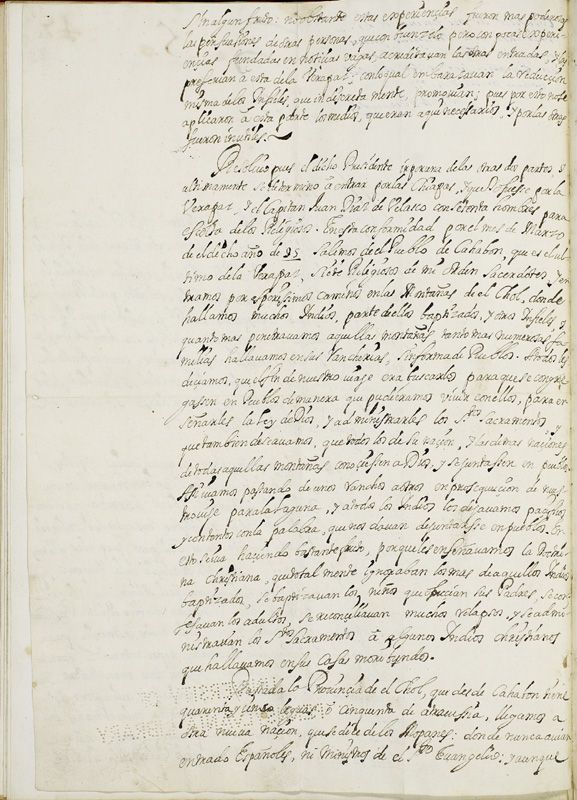 Sin algun fruto: no obstante estas experiencias fueron mas poderosas
las persuasiones de otras personas, que con buen zelo pero con pocas experi-
encias fundadas en noticias vagas, acreditavan las otras entradas, y las
preferian a esta de la Verapaz: con lo qual embarazavan la reduccion
misma de los Infieles, que indiscretamente promovian; pues por esto no se
aplicaron a esta parte los medios, que eran aqui necesarios, y por las otras
fueron inutiles.
Resolvio pues el dicho Presidente ir por una de las otras dos partes, y
ultimamente se determino a entrar por las Chiapas, y que se fuesse por la
Verapaz, y el Capitan Juan Diaz de Velasco con setenta hombres para
escolta de los Religiosos. En esta conformidad por el mes de Marzo
de el dicho año de 95 Salimos de el Pueblo de Cahabon, que es el ul-
timo de la Verapaz, Siete Religiosos de mi Orden Sacerdotes, y en-
tramos por asperissimos caminos en las Montañas de el Chol, donde
hallamos muchos Indios, parte de ellos baptizados, y otros Infieles, y
quanto mas penetravamos aquellas montañas, tanto mas numerosas fa-
milias hallavamos en sus rancherias, Sin forma de Pueblos. A todos les
deziamos, que el fin de nuestro viage era buscarlos para que se congre-
gassen en Pueblos de manera que pudieramos vivir con ellos, para en-
señarles la ley de Dios, y administrarles los Stos Sacramentos, y
que tambien deseavamos, que todos los de su nacion, y las demas naciones
de todas aquellas montañas conociessen a Dios, y se juntassen en pueblos.
Assi ivamos passando de unos ranchos a otros en prosecucion de nues-
tro viage para la laguna, y a todos los Indios los dejavamos pacificos
y contentos con la palabra, que nos davan de juntarse en pueblos. En
esto se iva haciendo bastante fruto, porque les enseñavamos la Doctri-
na Christiana, que totalmente ignoraban los mas de aquellos Indios
baptizados, se baptizavan los niños que ofrecian sus Padres, se con-
fesavan los adultos, se reconciliavan muchos relapsos, y se admi-
nistravan los Stos Sacramentos à algunos Indios christianos
que hallavamos en sus casas moribundos.
Passada la Provincia de el Chol, que desde Cahabon tiene
quarenta y cinco leguas ó cinquenta de atravessia, llegamos a
otra nueva nacion, que se dice de los Mopanes: donde nunca avian
entrado Españoles, ni Ministros de el Sto Evangelio: y aunque